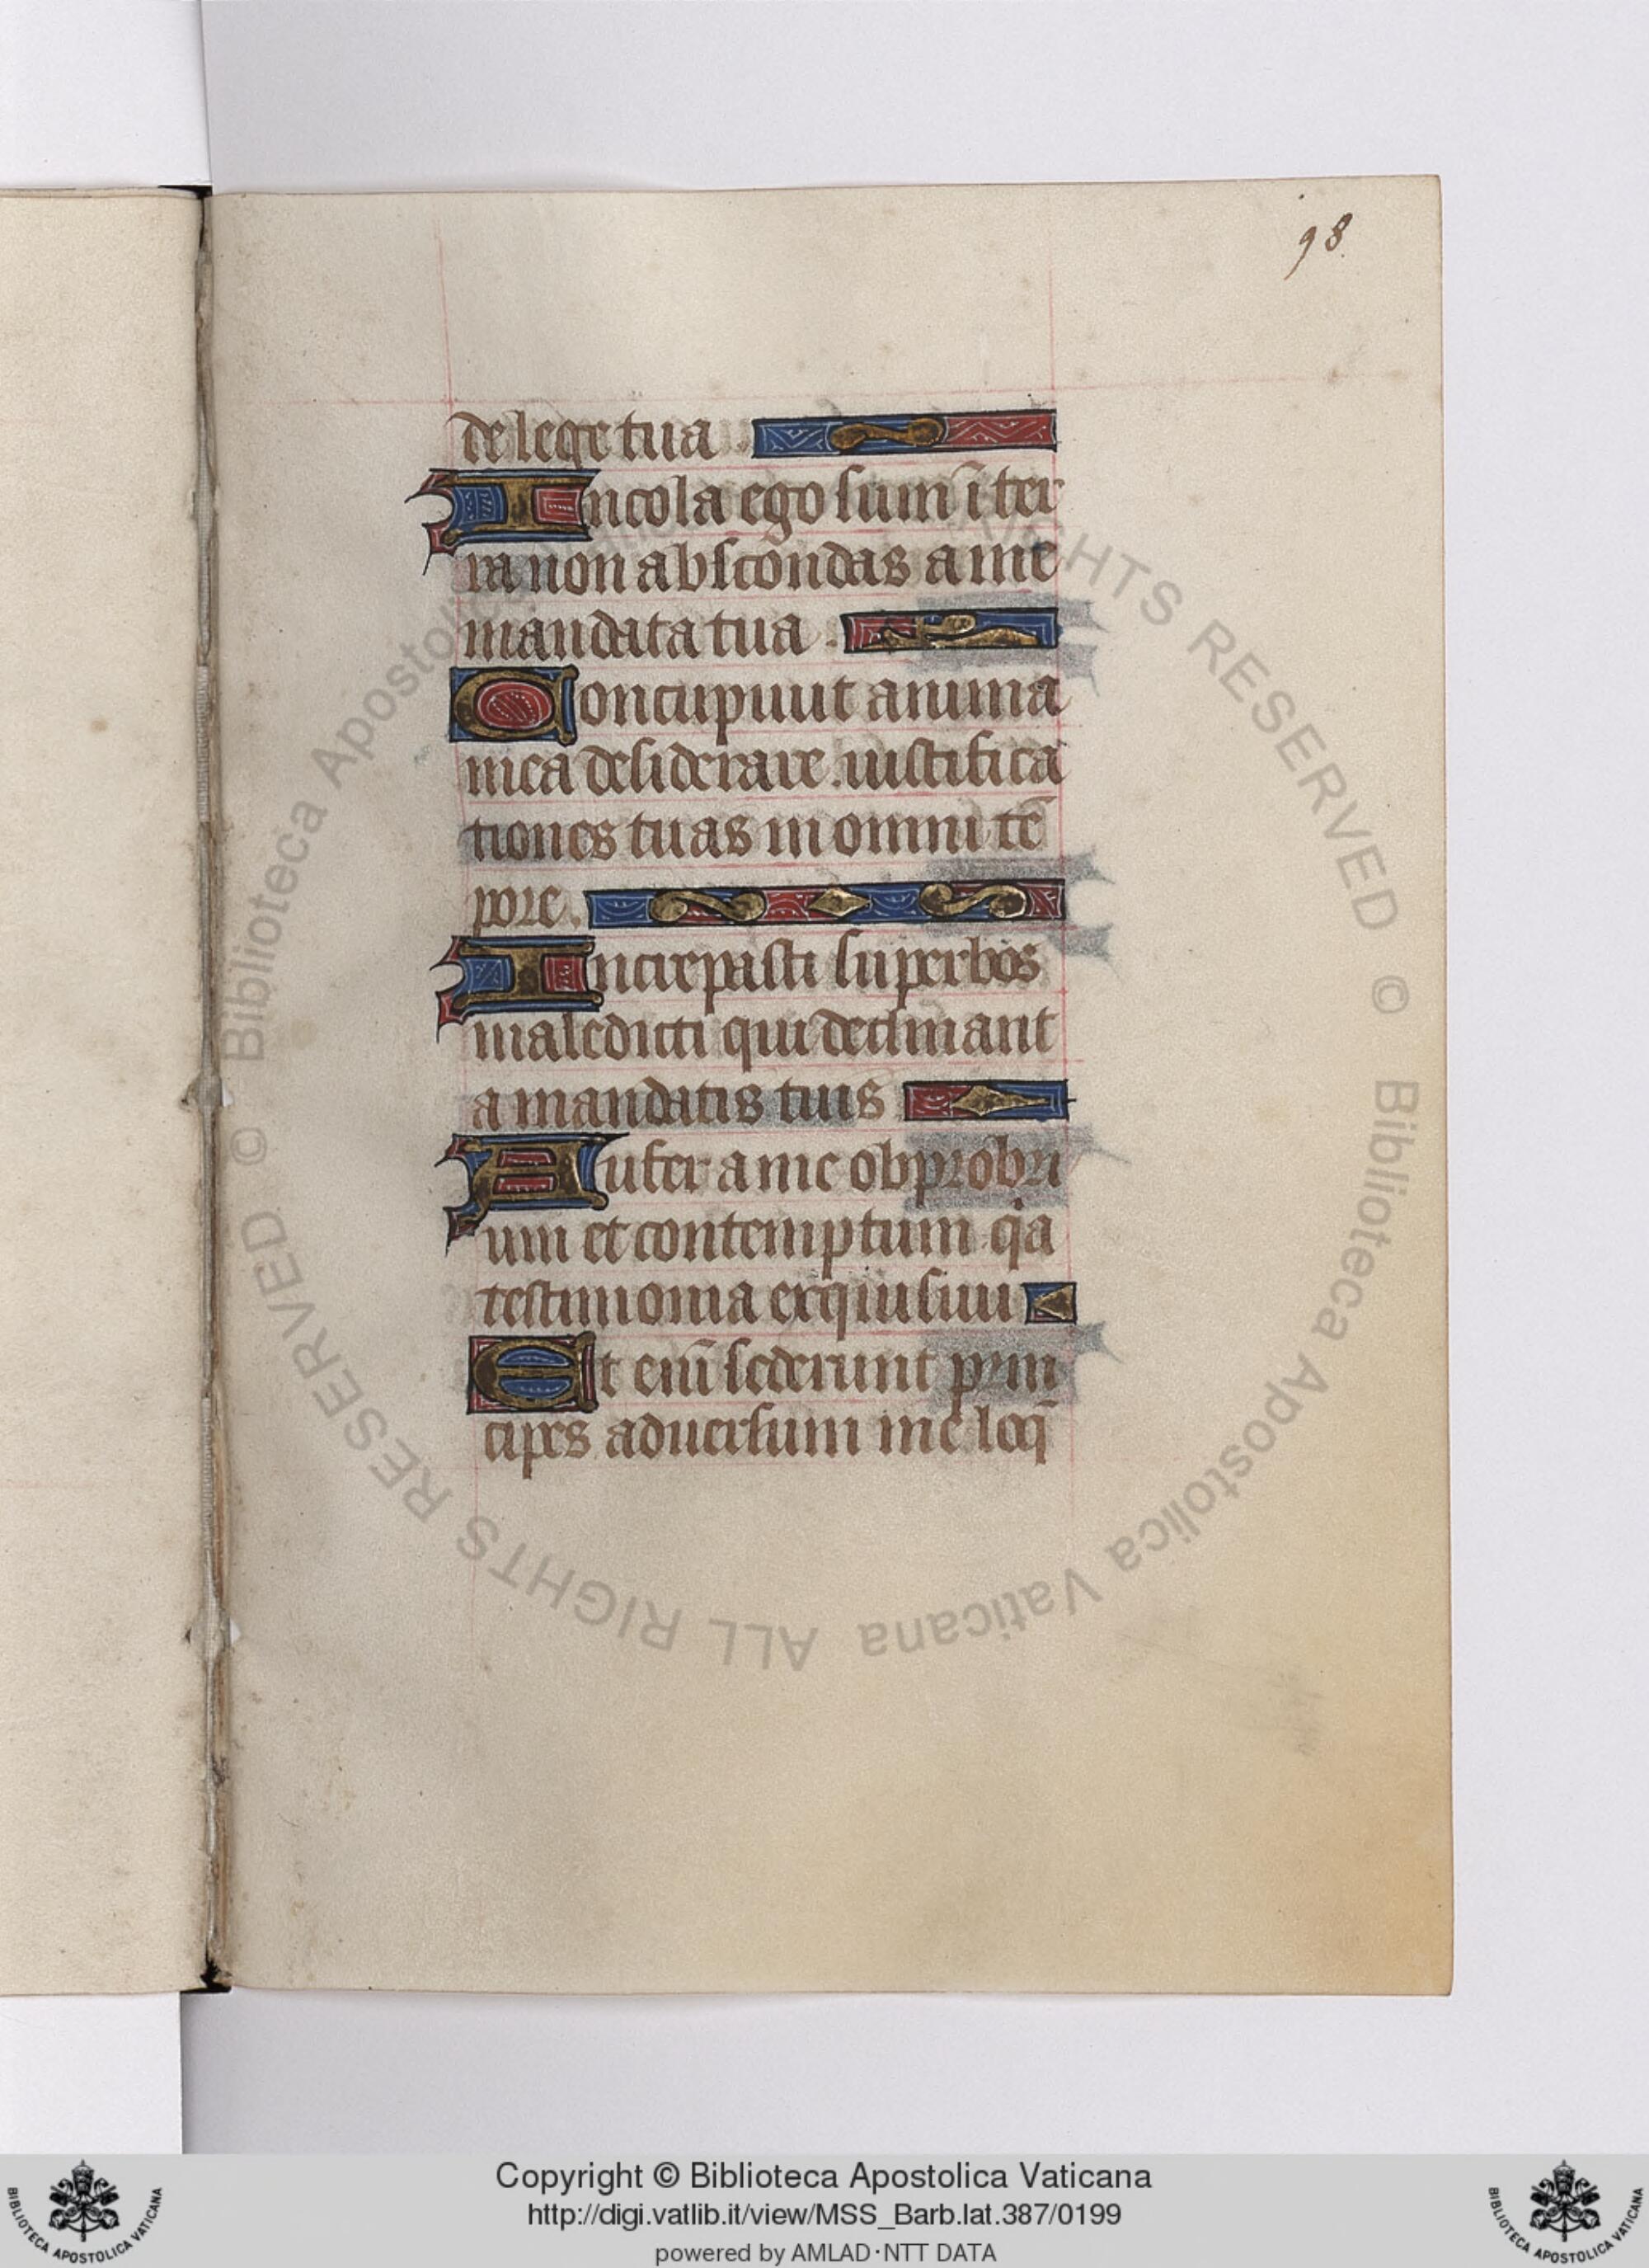 98.
de lege tua .
Incola ego sum ī ter
ra non abscondas a me
mandata tua .
Concupiuit anima
mea desiderare iustifica
tiones tuas in omni tē
pore .
Increpasti superbos
maledicti qui declinant
a mandatis tuis
Aufer a me obprobri
um et contemptum qia
testimonia exquisiui
Et eni̅ sederunt prin
cipes aduersum me loq̅
© Biblioteca Apostolica Vaticana ALL RIGHTS RESERVED © Biblioteca Apostolica Vaticana ALL RIGHTS RESERVED
Copyright © Biblioteca Apostolica Vaticana
http://digi.vatlib.it/view/MSS_Barb.lat.387/0199
powered by AMLAD·NTT DATA
BIBLIOTECA APOSTOLICA VATICANA
BIBLIOTECA APOSTOLICA VATICANA